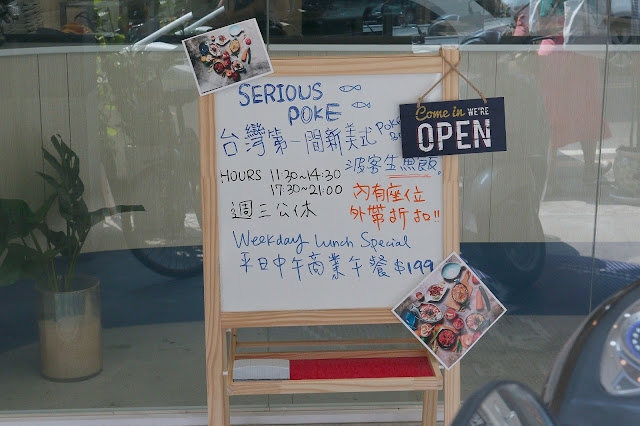 SERIOUS
POKE
台灣第一間新美式
波客生魚飯。
HOURS 11:30~14:30
17:30~21:00
週三公休
內有座位
外帶折扣!!
Weekday Lunch Special
平日中午商業午餐 $199
Come in WE'RE
OPEN